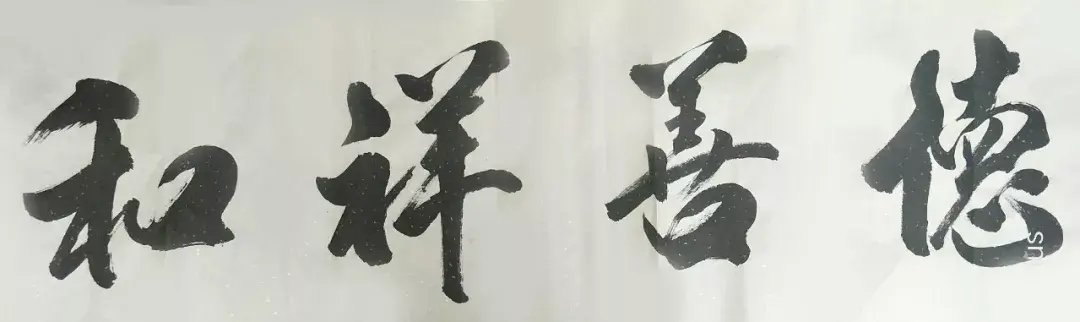 德善祥和
us